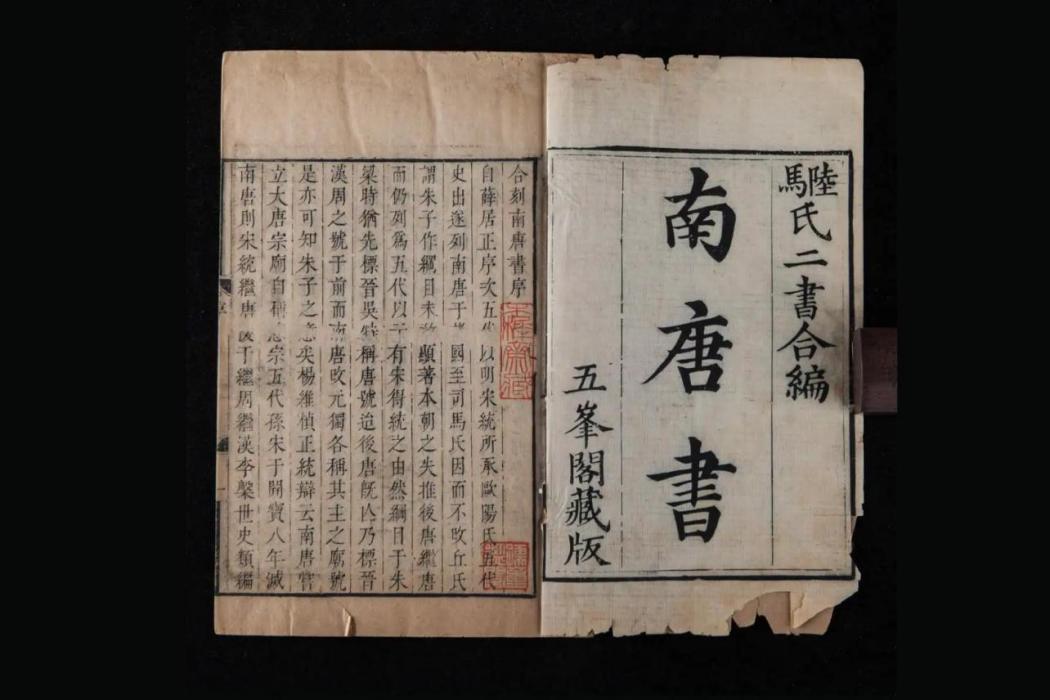 馬陸氏二書合編
南唐書
五峯閣藏版
合刻南唐書序
自薛居正序次五代以明宋統所承歐陽氏五代
史出遂列南唐于國至司馬氏因而不改丘氏
謂朱子作綱目未顯著本朝之失推後唐繼唐
而仍列爲五代以于有宋得統之由然綱目于朱
梁時猶先標晉吳稱唐號迨後唐既亡乃標晉
漢周之號于前而南唐改元獨各稱其主之廟號
是亦可知朱子之意矣楊維楨正統辯云南唐嘗
立大唐宗廟自稱憲宗五代孫宋于開寶八年滅
南唐則宋統繼唐于繼周繼漢李槃世史類編